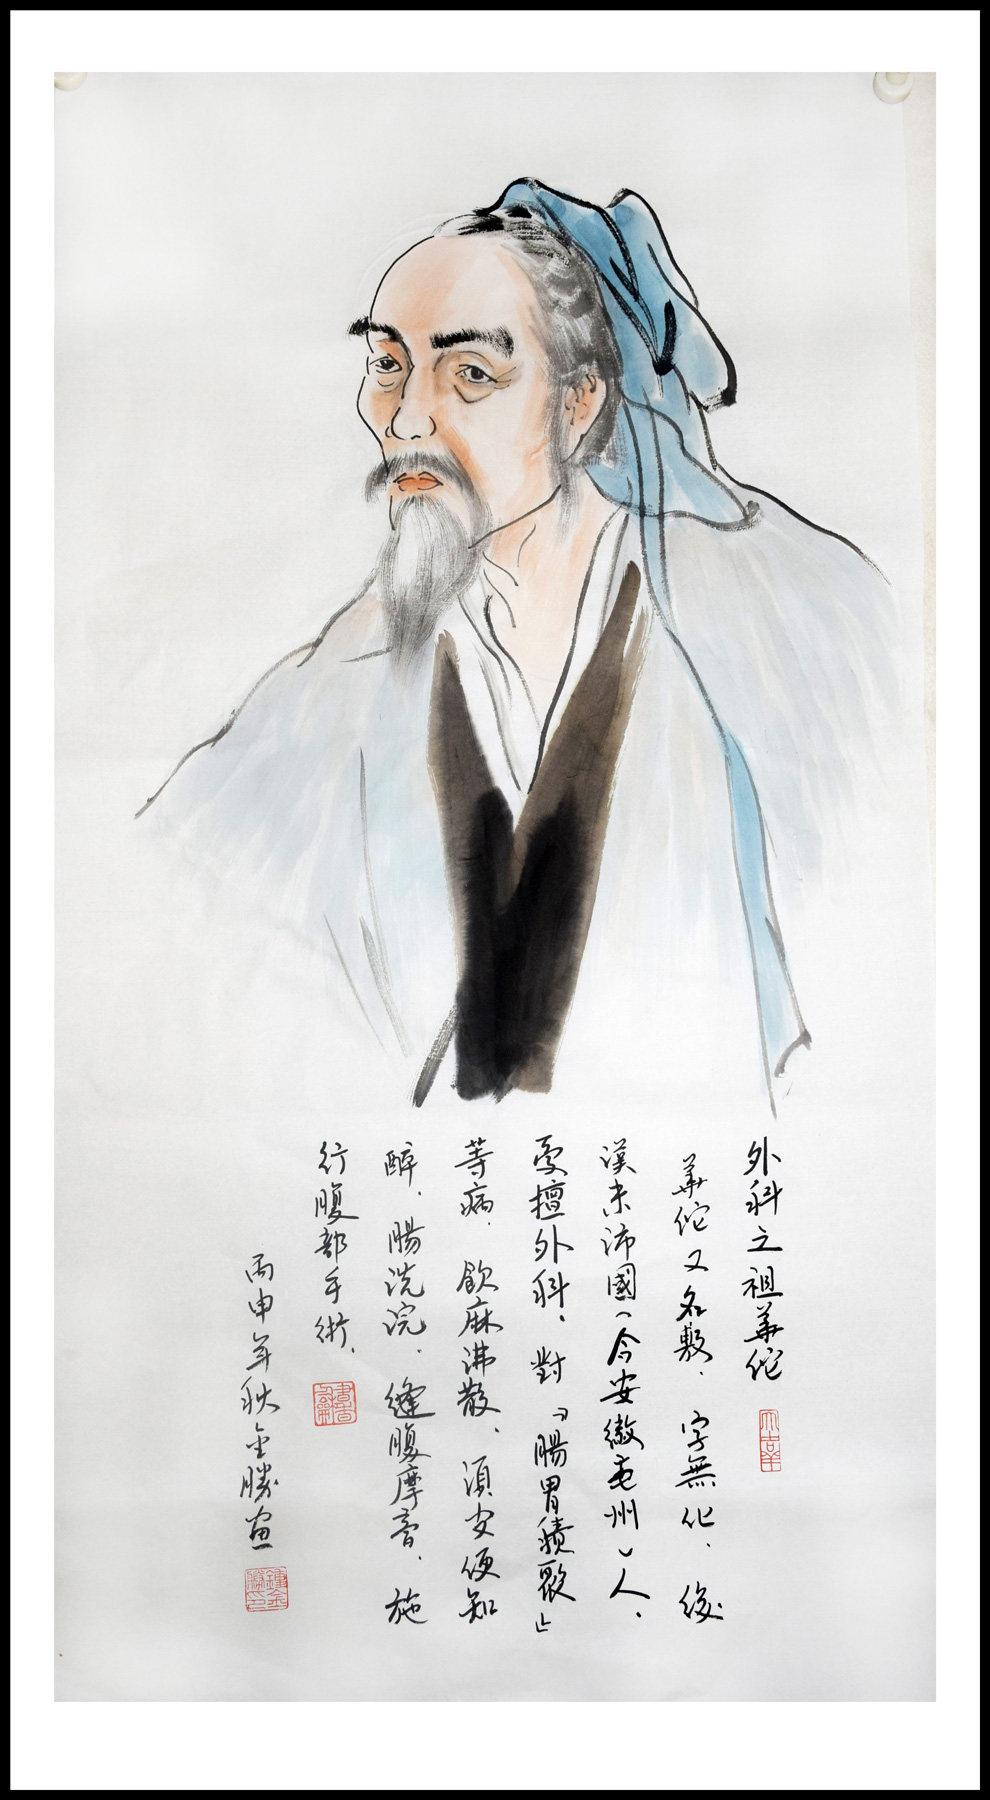 外科之祖華佗
華佗又名敷．字無化．後
漢末沛國（今安徽亳州）人．
憂擅外科．對「腸胃積聚」
等病．飲麻沸散．須臾便知
醉．腸洗浣．縫腹摩膏．施
行腹部手術．
丙申年秋金勝画
鍾金勝印